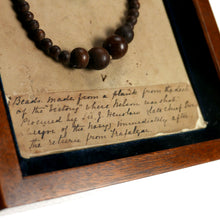 Beads made from a plank from the deck
of the "Victory" where Nelson was shot
Procured by Lt J. (late Chief
of the Navy) Immediately after
the return from Trafalgar.